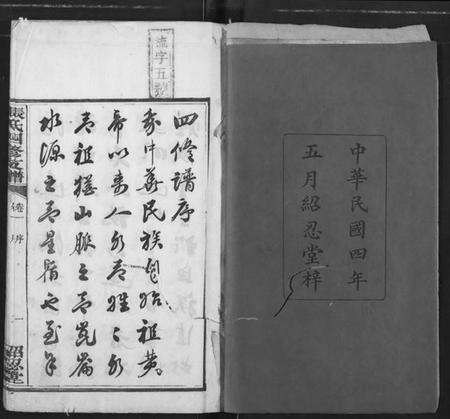 中華民國四年
五月紹忍堂梓
流字五號
四修譜序
我中華民族自始祖黃
帝以來人各有姓姓各
有祖猶山脈之有崑崙
水源之有星宿也至
張氏四修支譜
卷一序
一
紹忍堂